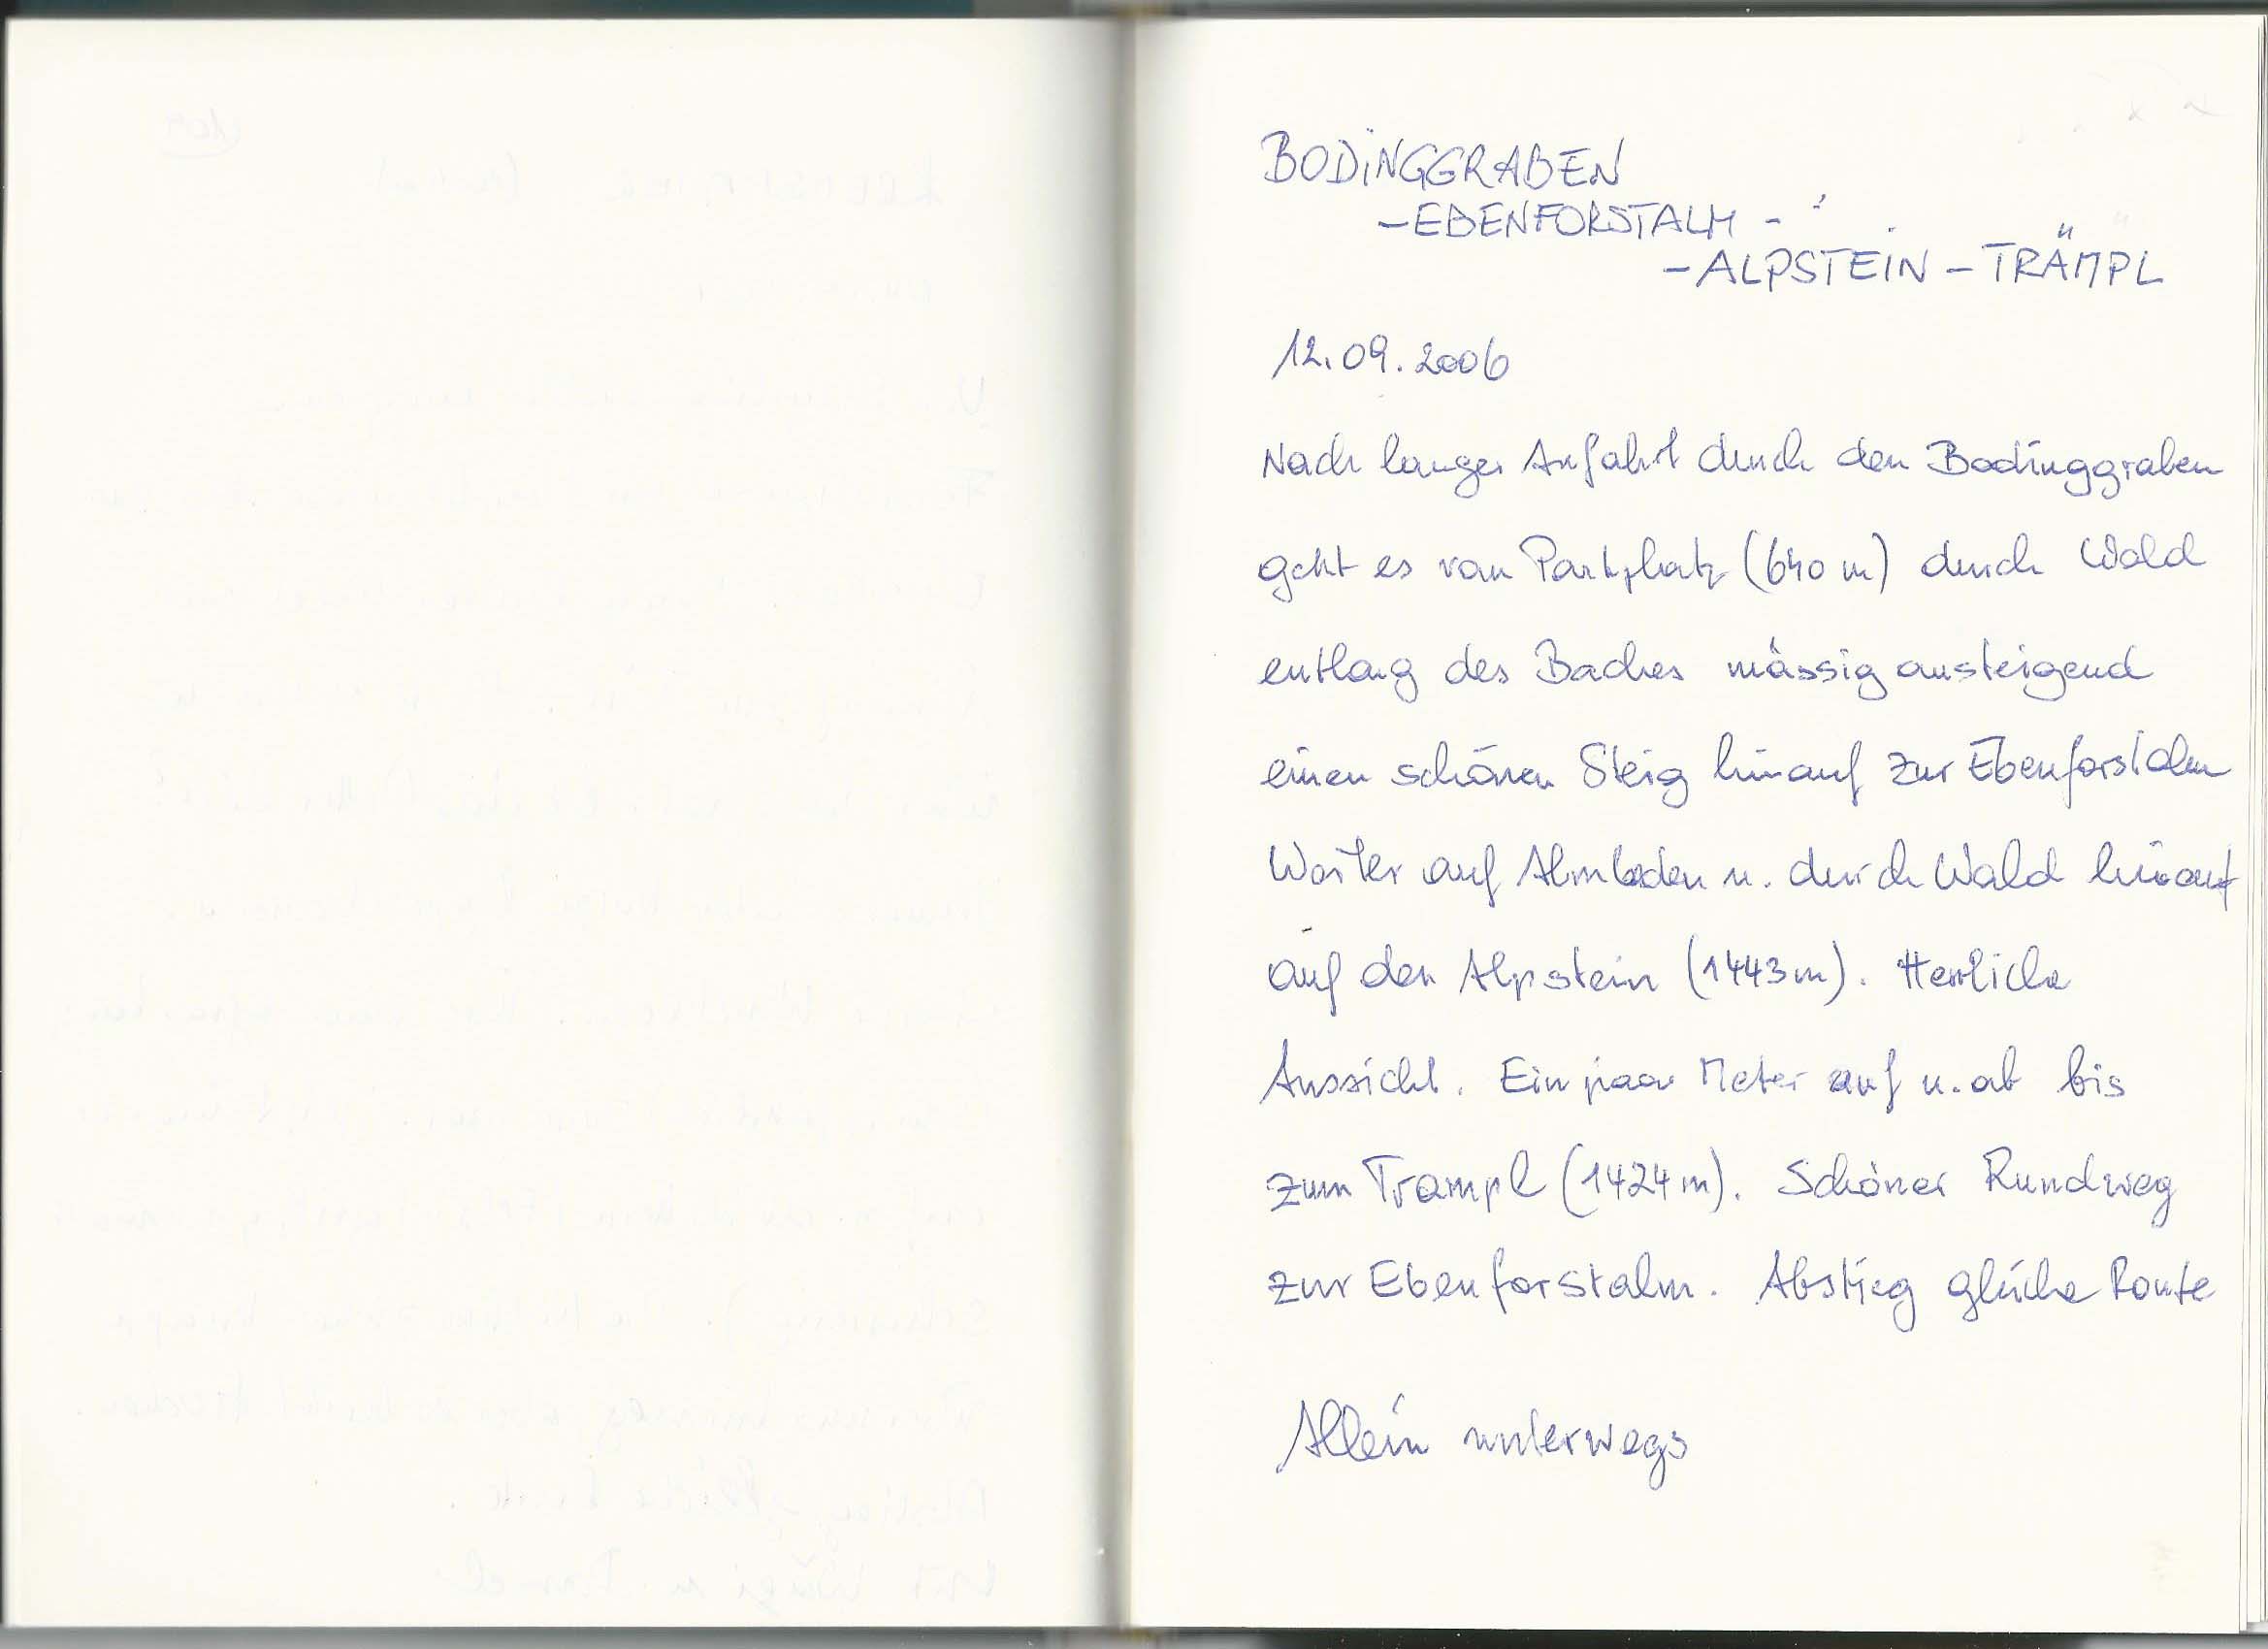 BODINGGRABEN
-EBENFORSTALM -
-ALPSTEIN - TRÄMPL
12.09.2006
Nach langer Anfahrt durch den Bodinggraben
geht es vom Parkplatz (640 m) durch Wald
entlang des Baches mässig ansteigend
einen schönen Steig hinauf zur Ebenforstalm
Weiter auf Almboden u. durch Wald hinauf
auf den Alpstein (1443 m). Herrliche
Aussicht. Ein paar Meter auf u. ab bis
zum Trampl (1424 m). Schöner Rundweg
zur Ebenforstalm. Abstieg gleiche Route
Allein unterwegs